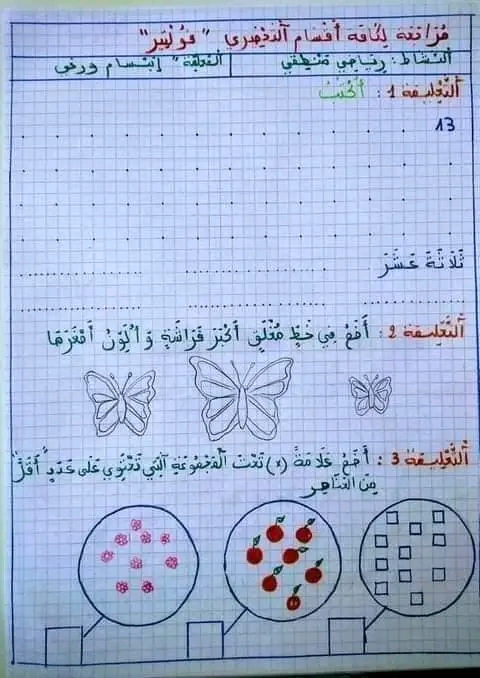 مُرَاجَعَة لِكَافَة أَقْسَامِ التَّحْضِيرِي "فُولْتِير"
النَّشَاط: رِيَاضِي مَنْطِقِي
المعلمة "إبْتِسَام ورخي
التَّعْلِيمَة 1: أَكْتُبُ
13
ثَلَاثَةَ عَشَرَ
التَّعْلِيمَة 2: أَضَعُ فِي خَطٍّ مُغْلَقٍ أَكْبَرَ فَرَاشَةٍ وَ أُلَوِّنُ أَصْغَرَهَا
التَّعْلِيمَة 3: أَضَعُ عَلَامَةً (x) تَحْتَ الْمَجْمُوعَةِ الَّتِي تَحْتَوِي عَلَى عَدَدٍ أَقَلَّ
مِنَ العَنَاصِر